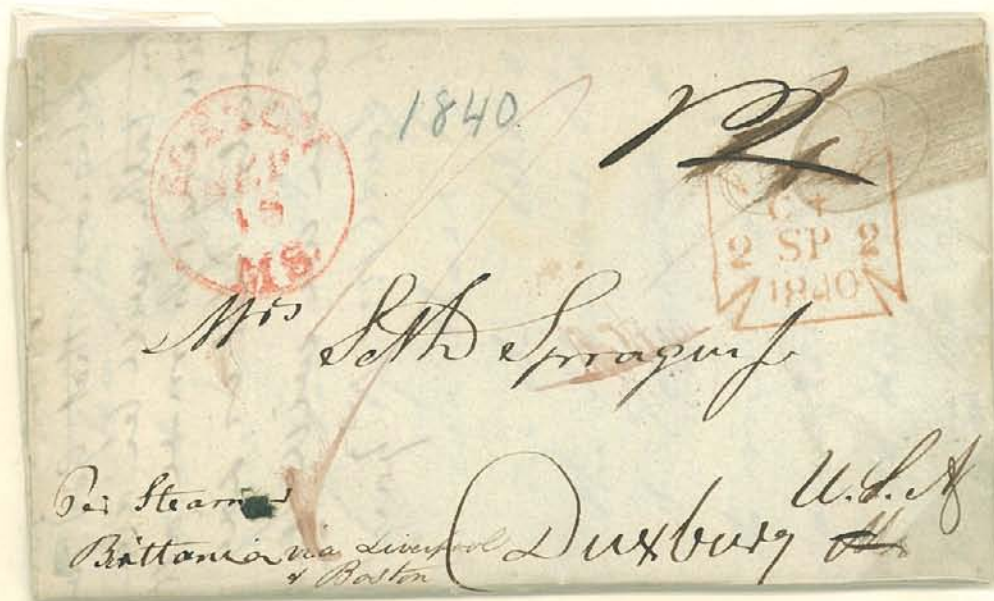 1840
BOSTON
SEP
MS.
2 SP 2
1840
Mrs Seth Sprague Jr
U.S.A
Per Steamer
Brittania via Liverpool
& Boston
Duxbury